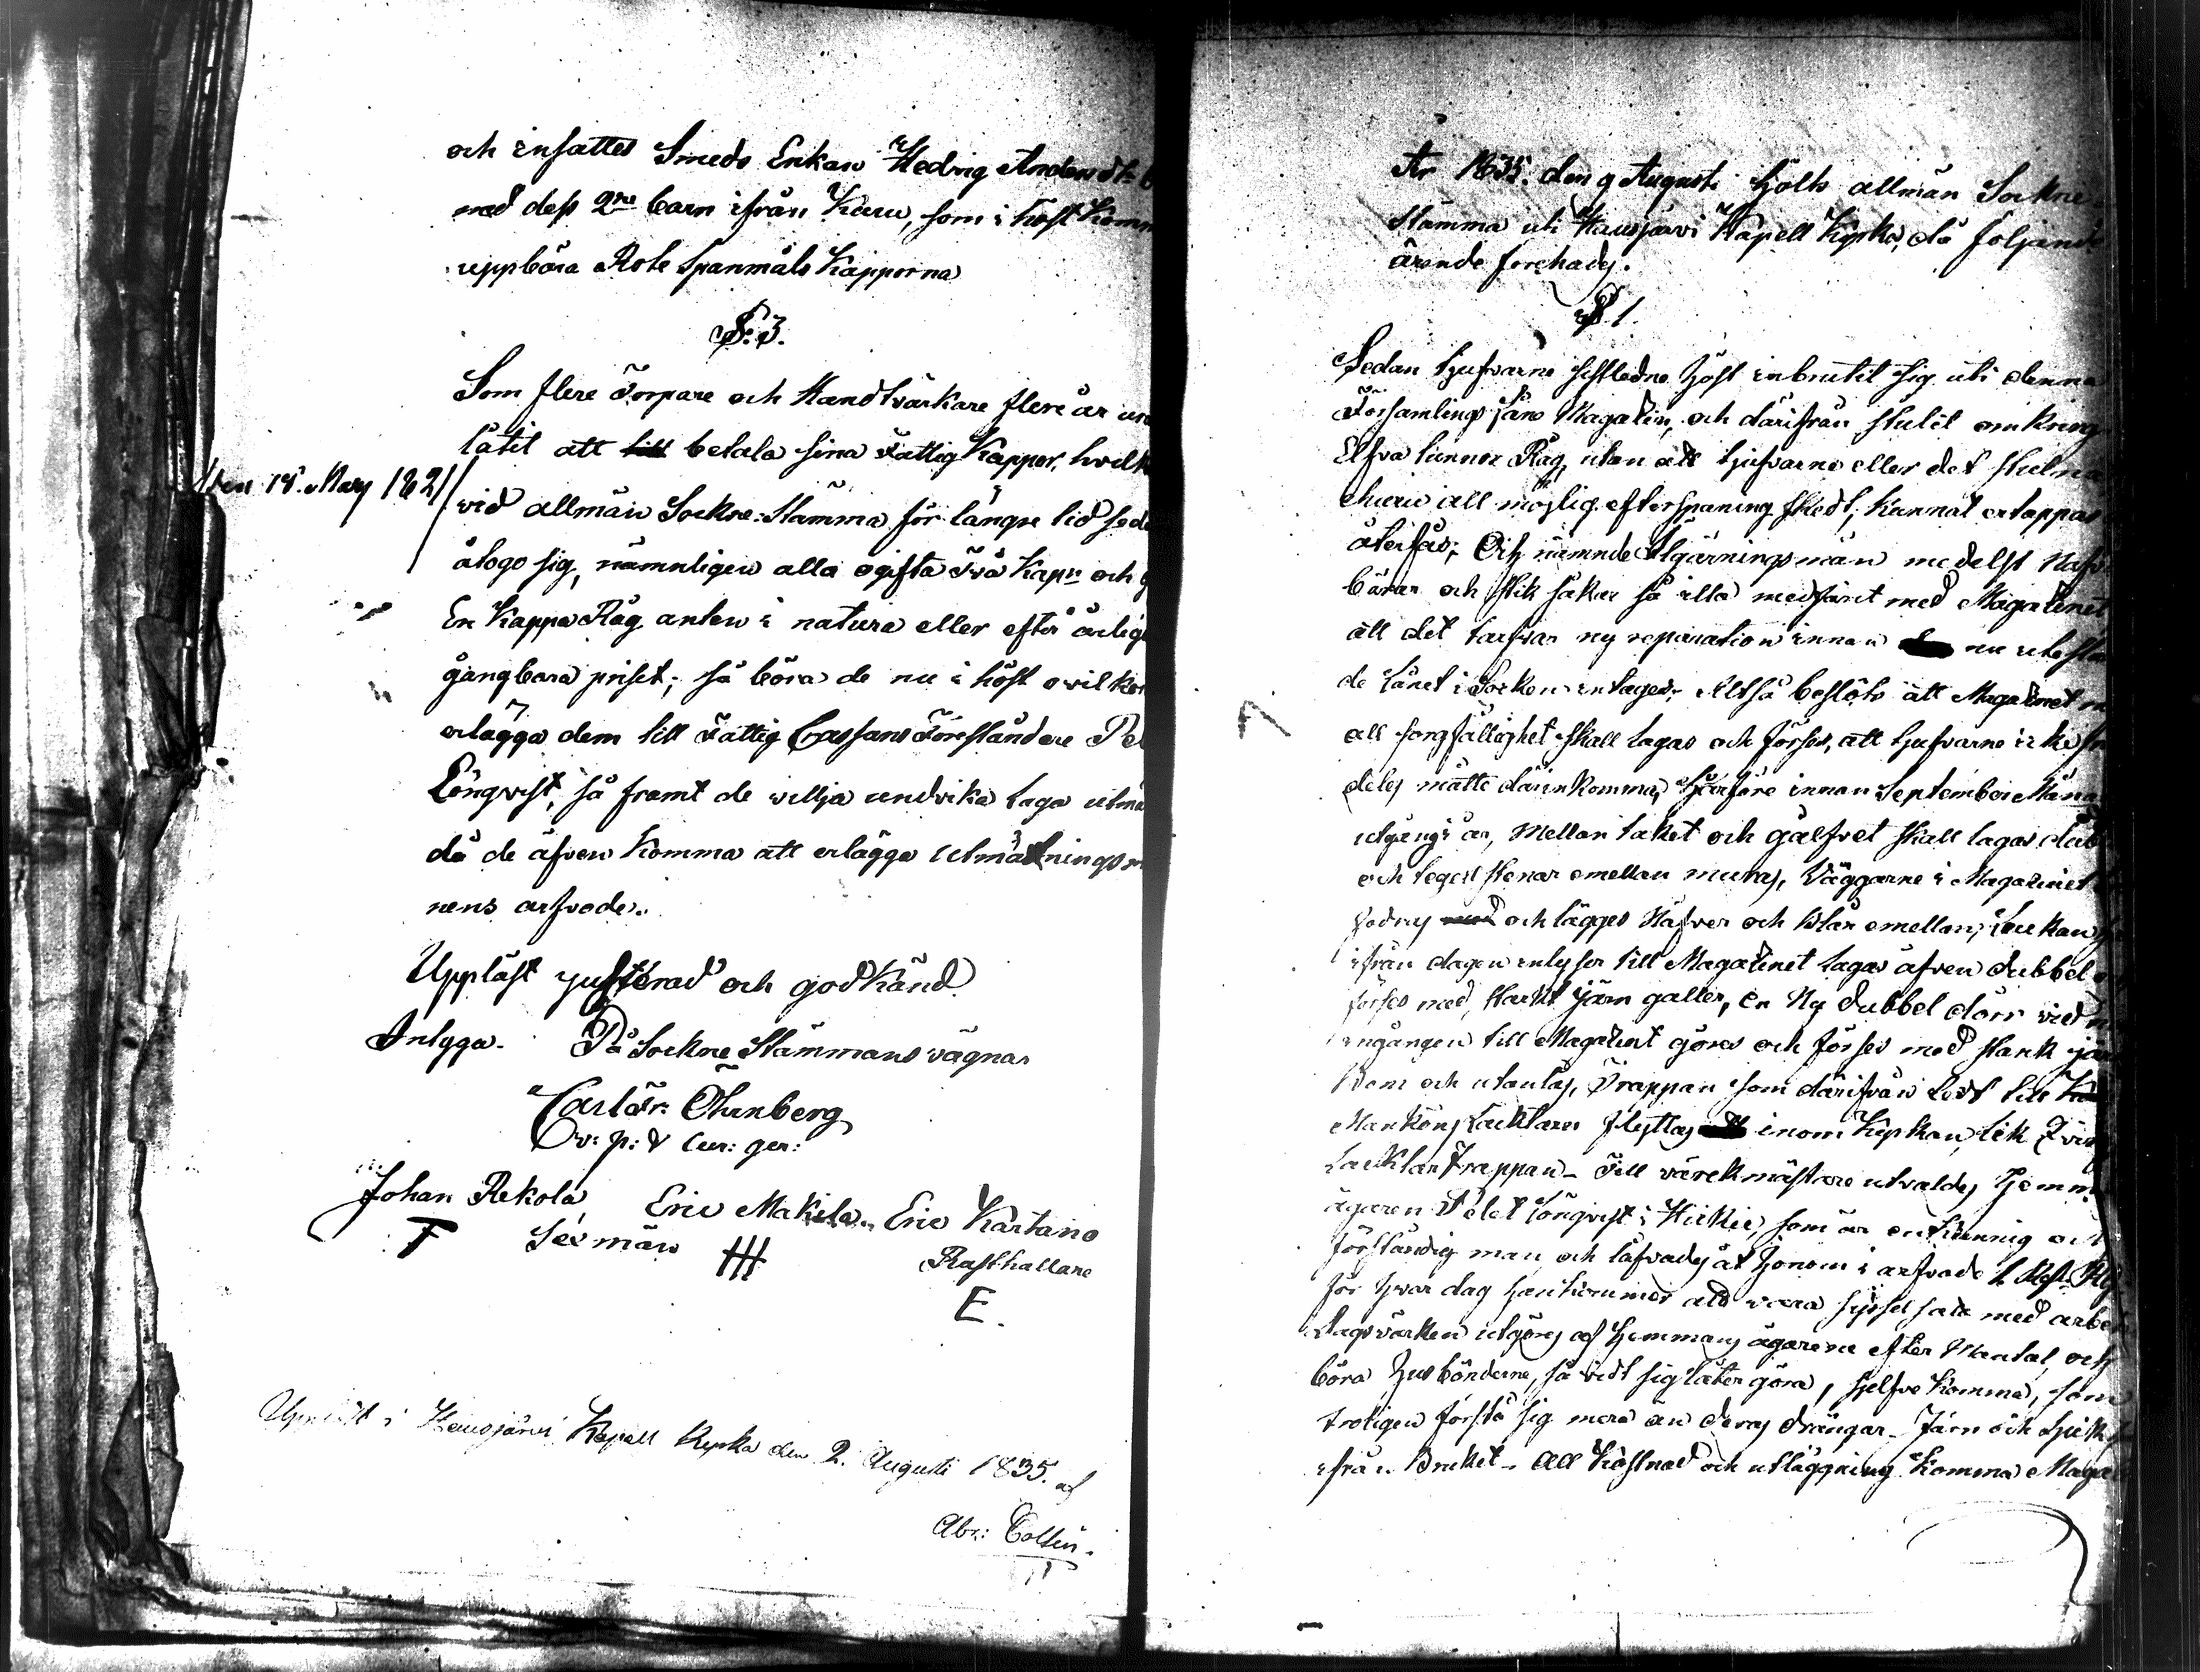 och insattes Smeds Enkan Hedvig Andersdtr
med dess 2ne barn ifrån Karu, som i höst Komm
uppbära Rote Spanmåls Kapporna
§. 3.
Som flere Torpare och Handtvärkare flere år un
låtit att betala sina Fattig Kappor, hvilk
den 15. Mars 1821
vid allmän Sockne-Stämma för längre tid seda
åtogo sig, nämnligen alla ogifta Två Kapr och g
En Kappa Råg anten i natura eller efter årlige
gångbara priset; så böra de nu i höst ovilkor
erlägga dem till Fattig Cassans Föreståndare Pe
Lönqvist, så framt de villja undvika laga utmä
då de äfven Komma att erlägga Utmätningsm
nens arfvode.
Uppläst justerad och godkänd
Intyga. På Sockne Stämmans vägnar
Carl Fr: Öhrnberg
v: p: & Cur: ger:
Johan Rekola Eric Makila Eric Kartano
Sexmän Rusthallare
E.
Upläst i Hausjärvi Kapell Kyrka den 2. Augusti 1835. af
Abr: Collin.
År 1835. den 9 Augusti hölts allmän Sockne
Stämma uti Hausjärvi Kapell Kyrka, då följande
ärende förehades.
§ 1.
Sedan tjufvarne sistledne höst inbrutit sig uti denna
Församlings låne Magazin, och därifrån stulit omkring
Elfva tunnor Råg, utan att tjufvarne eller det stulna
ehuru all möjlig efterspaning skedt, kunnat ertappas
återfås; Och nämnde Ilgärningsmän medelst Nafv
bårar och stik sakar så illa medfarit med Magazinet
att det tarfvar ny reparation innan nu utestå
de lånet i Socken intages; Altså beslöts att Magazinet m
all sorgfällighet skall lagas och förses, att tjufvarne icke fr
deles måtte därinkomma, Härföre innan September Måna
utgång i år, mellan taket och golfvet skall lagas dub
och tegel stenar emellan muras, Väggarne i Magazinet
fodras och lägges Näfver och Blår emellan; Luckan
ifrån dagen inlyser till Magazinet lagas äfven dubbel
förses med starkt järn galler, En Ny dubbel dörr vid
ingången till Magazinet göres och förses med stark jär
Bom och utanlås, Trappan som därifrån ledt till
Manköns Lacktaren flyttas inom Kyrkan, lik Qvin
Lacktar Trappan - Till värckmästare utvaldes Hemma
ägaren Petet Lönqvist i Hikie, som är en kunnig och
förståndig man, och låfvades åt honom i arfvode 1 Rub. Rg
för hvar dag han kommer att vara sysselsatt med arbe
Dagsvärken utgöres af Hemmans ägarene efter Mantal, och
böra husbönderne, så vidt sig låter göra, sjelfve Komma, som
troligen förstå sig mera än deras drängar. Järn och spik
ifrån Bruket. All Kostnad och utläggning Komma Maga